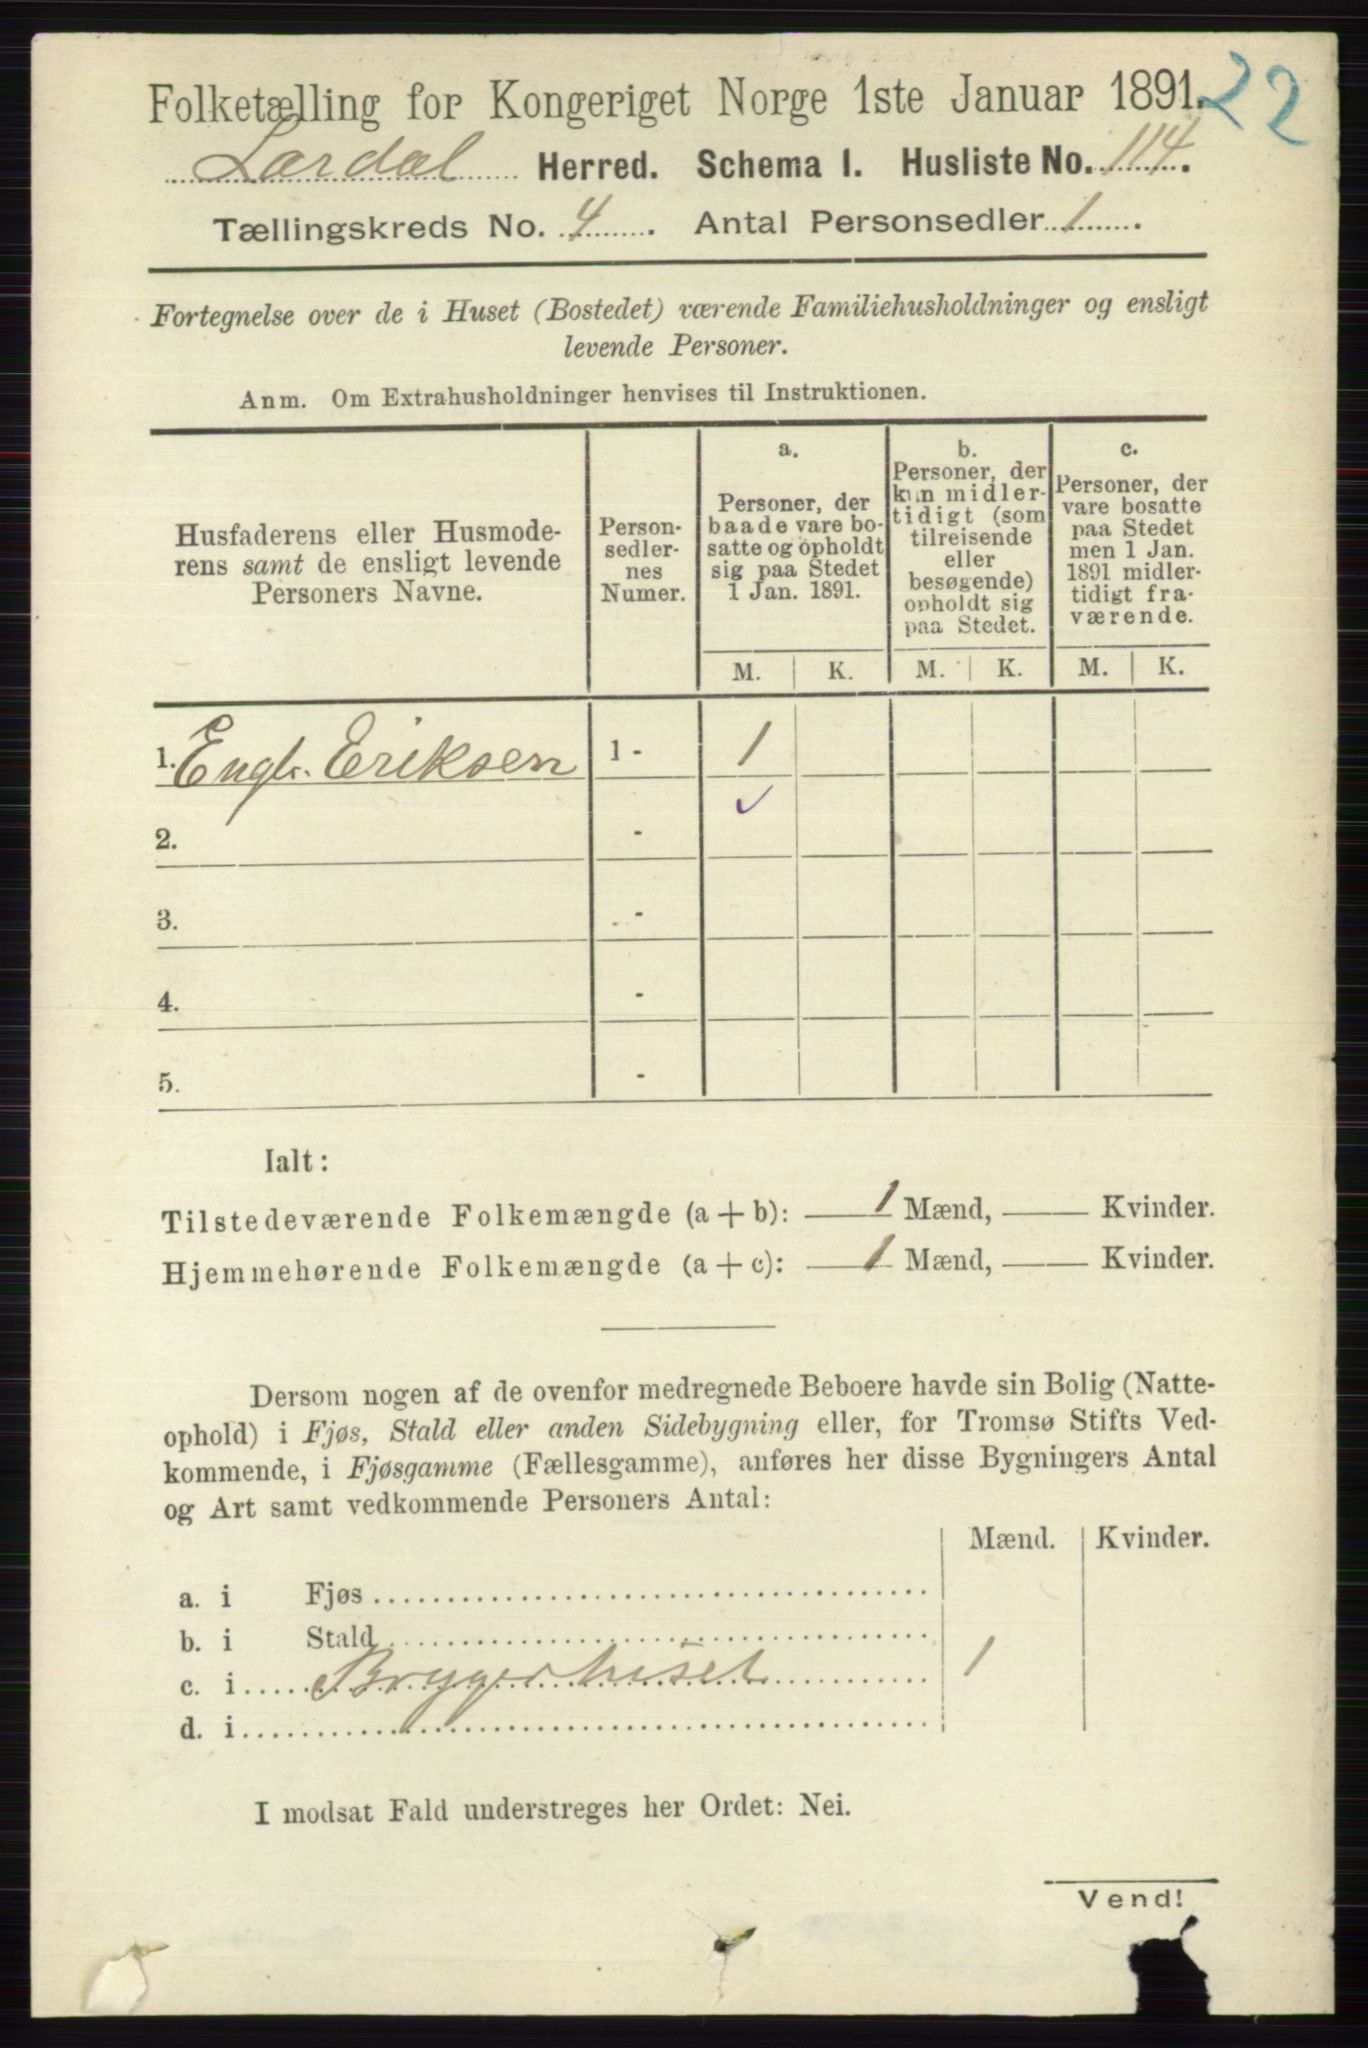 Folketælling for Kongeriget Norge 1ste Januar 1891. 22
Lardal Herred. Schema I. Husliste No. 114.
Tællingskreds No. 4. Antal Personsedler 1.
Fortegnelse over de i Huset (Bostedet) værende Familiehusholdninger og ensligt
levende Personer.
Anm. Om Extrahusholdninger henvises til Instruktionen.
Husfaderens eller Husmode-
rens samt de ensligt levende
Personers Navne.
Person-
sedler-
nes
Numer.
a.
Personer, der
baade vare bo-
satte og opholdt
sig paa Stedet
1 Jan. 1891.
b.
Personer, der
kun midler-
tidigt (som
tilreisende
eller
besøgende)
opholdt sig
paa Stedet.
c.
Personer, der
vare bosatte
paa Stedet
men 1 Jan.
1891 midler-
tidigt fra-
værende.
M. K. M. K. M. K.
1. Engb. Eriksen 1 - 1
2. -
3. -
4. -
5. -
Ialt:
Tilstedeværende Folkemængde (a + b): 1 Mænd, Kvinder.
Hjemmehørende Folkemængde (a + c): 1 Mænd, Kvinder.
Dersom nogen af de ovenfor medregnede Beboere havde sin Bolig (Natte-
ophold) i Fjøs, Stald eller anden Sidebygning eller, for Tromsø Stifts Ved-
kommende, i Fjøsgamme (Fællesgamme), anføres her disse Bygningers Antal
og Art samt vedkommende Personers Antal:
Mænd. Kvinder.
a. i Fjøs
b. i Stald
c. i Bryggerhuset 1
d. i
I modsat Fald understreges her Ordet: Nei.
Vend!